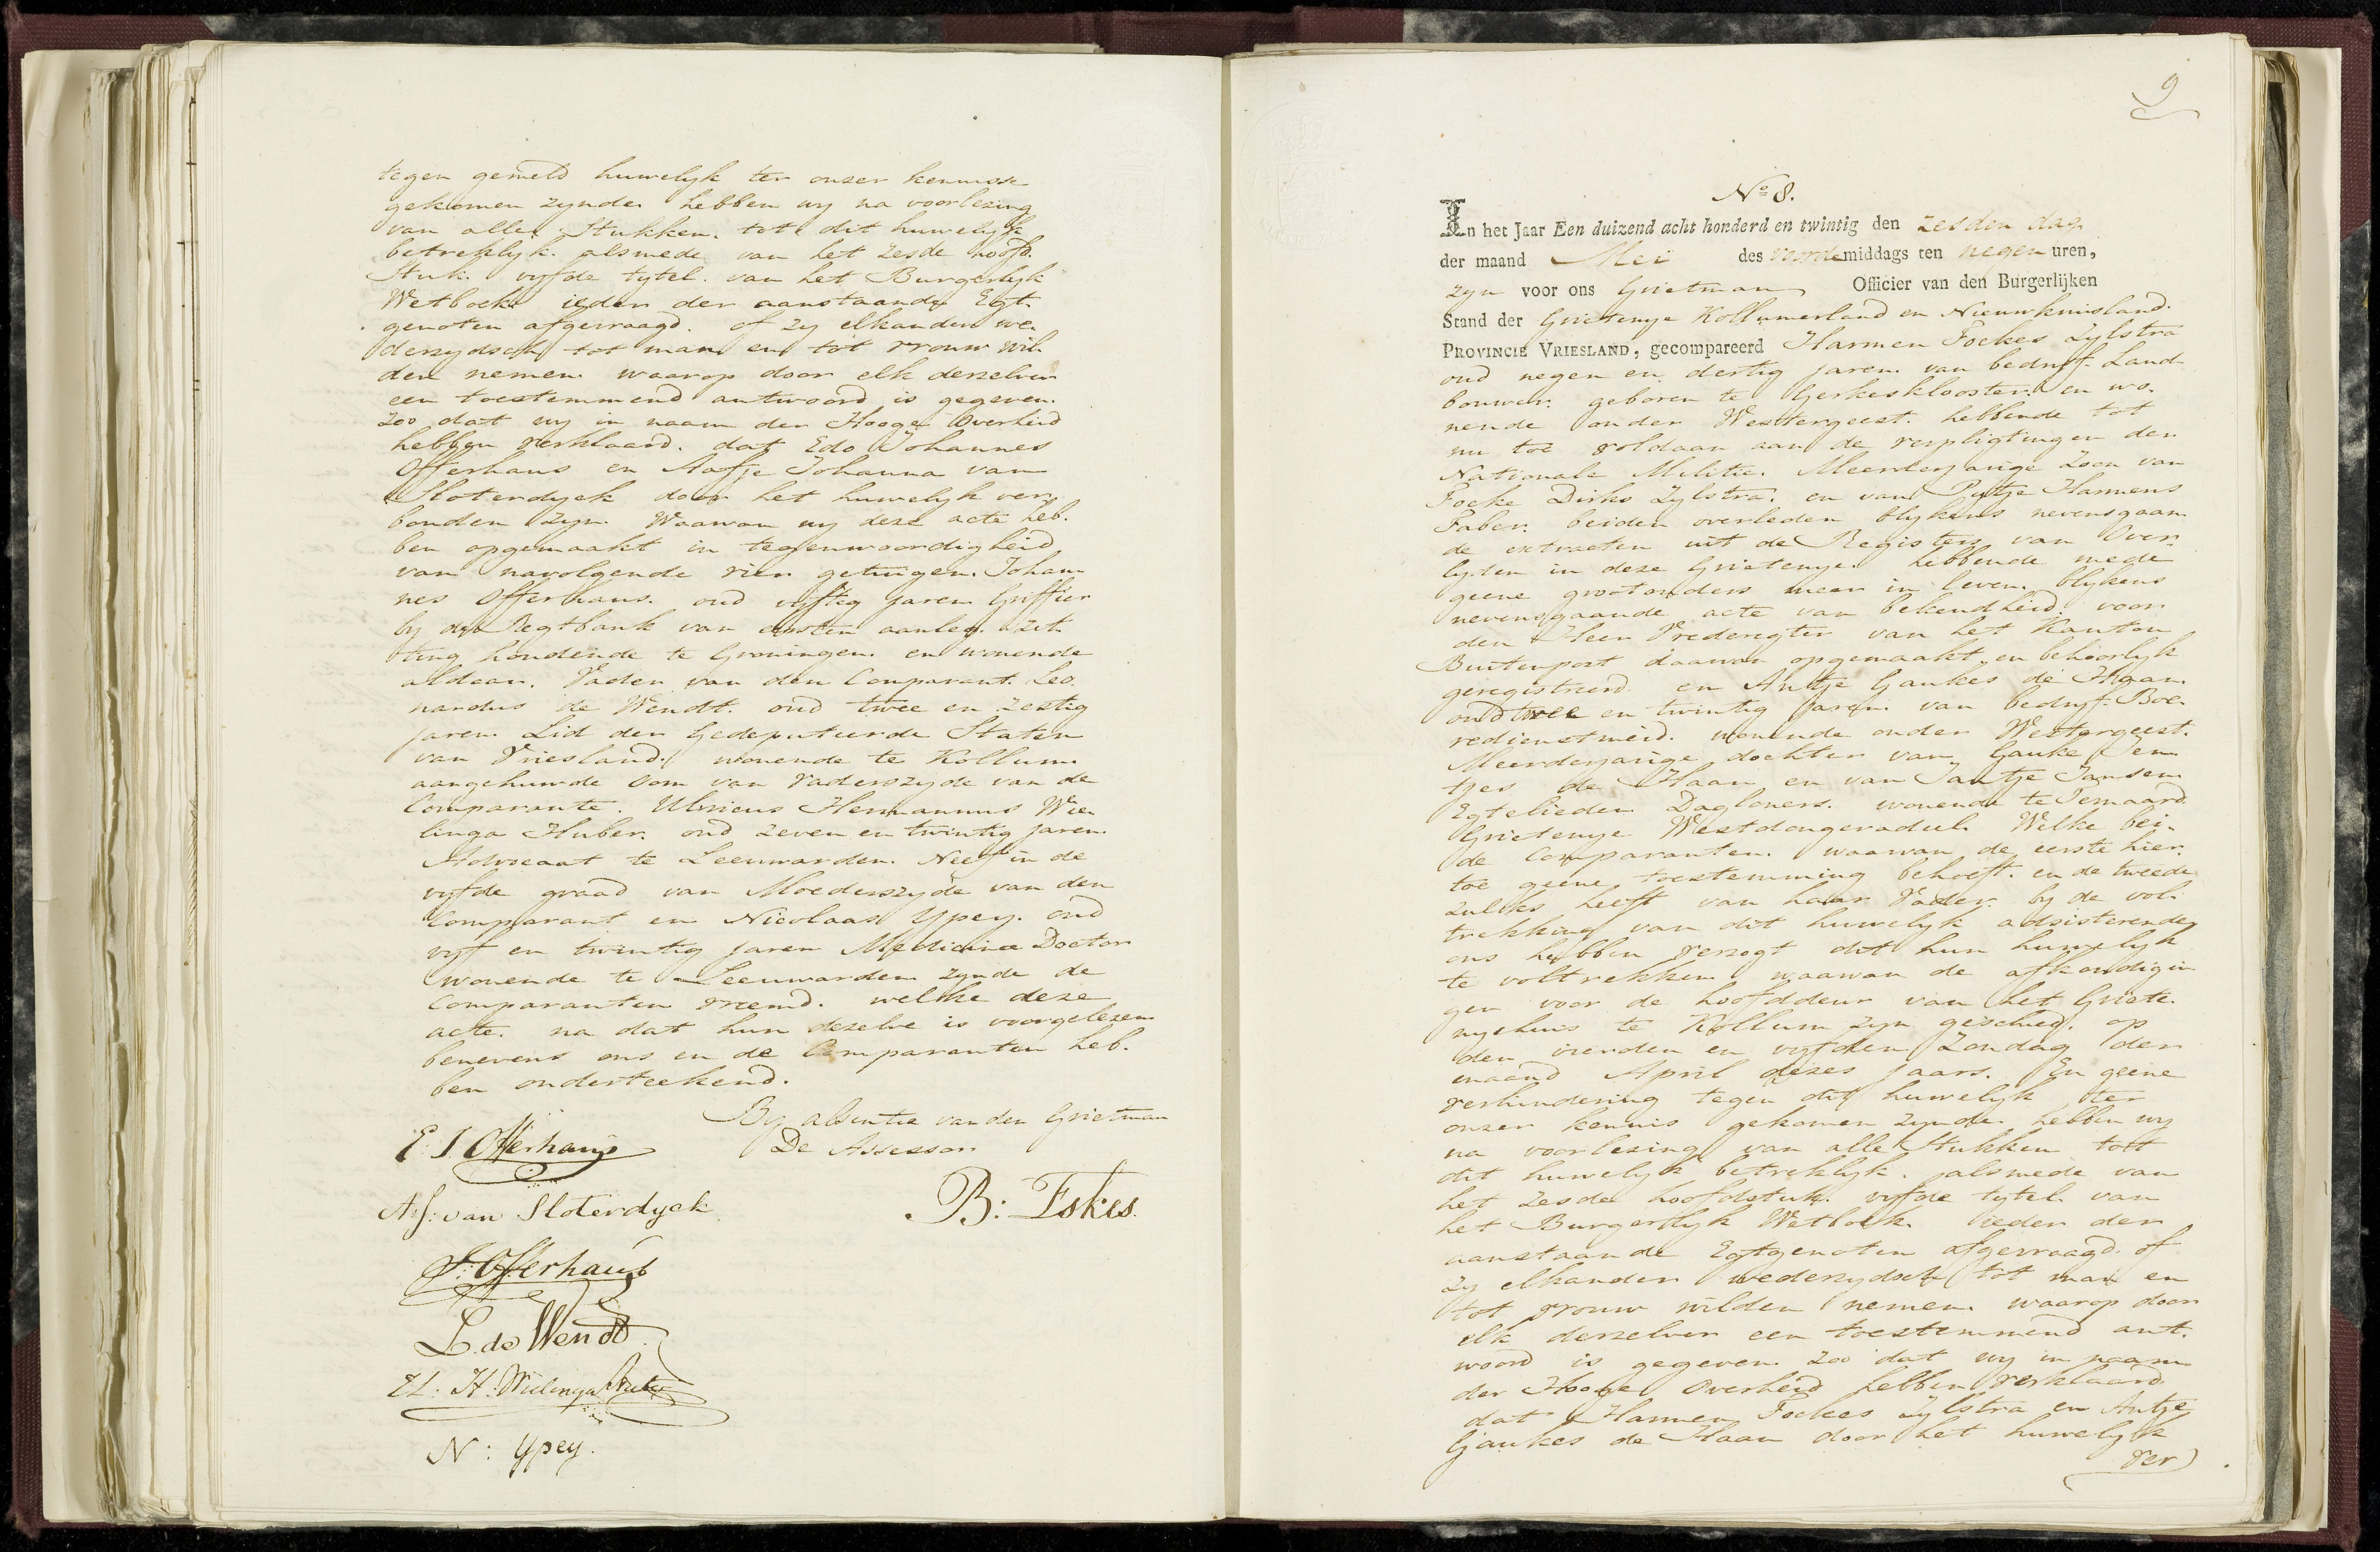 tegen gemeld huwelyk ter onzer kennisse
gekomen zynde. hebben wy na voorlezing
van alle Stukken. tot dit huwelyk
betreklyk. alsmede van het zesde hoofd.
Stuk. vyfde tytel. van het Burgerlyk
Wetboek. ieder der aanstaande Egt.
genoten afgevraagd. of zy elkander we.
derzydsch tot man en tot vrouw wil.
den nemen. waarop door elk derzelver
een toestemmend antwoord is gegeven.
zoo dat wy in naam der Hooge Overheid
hebben verklaard. dat Edo Johannes
Offerhaus en Aafje Johanna van
Sloterdyck door het huwelyk ver.
bonden zyn. Waarvan wy deze acte heb.
ben opgemaakt in tegenwoordigheid
van navolgende vier getuigen. Johan
nes Offerhaus. oud vyftig jaren Griffier
by de Regtbank van eersten aanleg. zit.
ting houdende te Groningen. en wonende
aldaar. Vader van den Comparant. Leo.
nardus de Wendt. oud twee en zestig
jaren. Lid der Gedeputeerde Staten
van Vriesland. wonende te Kollum.
aangehuwde Oom van vaderszyde van de
Comparante. Ulricus Hermannus Wie.
linga Huber. oud zeven en twintig jaren.
Advocaat te Leeuwarden. Neef in de
vyfde graad van Moederszyde van den
Comparant en Nicolaas Ypey. oud
vyf en twintig jaren Medicinae Doctor
wonende te Leeuwarden zynde de
Comparanten vreemd. welke deze
acte. na dat hun dezelve is voorgelezen
benevens ons en de Comparanten heb.
ben onderteekend.
By absentie van den Grietman
De Assessor
E. J. Offerhaus
A. J. van Sloterdyck
B: Eskes.
J. Offerhaus
L. de Wendt.
U. H. Wielinga Huber
N: Ypey.
9
No 8.
In het Jaar Een duizend acht honderd en twintig den zesden dag
der maand Mei des voordemiddags ten negen uren,
zyn voor ons Grietman Officier van den Burgerlijken
Stand der Grietenye Kollumerland en Nieuwkruisland.
PROVINCIE VRIESLAND, gecompareerd Harmen Fockes Zylstra
oud negen en dertig jaren. van bedryf Land.
bouwer. geboren te Gerkesklooster. en wo.
nende onder Westergeest. hebbende tot
nu toe voldaan aan de verpligtingen der
Nationale Militie. Meerderjarige Zoon van
Focke Dirks Zylstra. en van Pytje Harmens
Faber. beiden overleden blykens nevensgaan
de extracten uit de Registers van Over.
lyden in deze Grietenye. hebbende mede
geene grootouders meer in leven. blykens
nevensgaande acte van bekendheid. voor
den Heer Vrederegter van het Kanton
Buitenpost daarvan opgemaakt en behoorlyk
geregistreerd. en Antje Gaukes de Haan.
oud twee en twintig jaren. van bedryf Boe.
redienstmeid. wonende onder Westergeest.
Meerderjarige dochter van Gauke Jen
tjes de Haan en van Jantje Jansen.
Egtelieden Dagloners. wonende te Ternaard.
Grietenye Westdongeradeel. Welke bei.
de Comparanten. waarvan de eerste hier.
toe geene toestemming behoeft. en de tweede
zulks heeft van haar Vader. by de vol.
trekking van dit huwelyk adsisterende
ons hebben verzogt dit hun huwelyk
te voltrekken waarvan de afkondigin
gen voor de hoofddeur van het Griete.
nyehuis te Kollum zyn geschied. op
den vierden en vyfden Zondag der
maand April dezes jaars. En geene
verhindering tegen dit huwelyk ter
onzer kennis gekomen zynde. hebben wy
na voorlezing van alle Stukken tott
dit huwelyk betreklyk. alsmede van
het zesde hoofdstuk. vyfde tytel. van
het Burgerlyk Wetboek. ieder der
aanstaande Egtgenoten afgevraagd. of
zy elkander wederzydsch tot man en
tot vrouw wilden nemen. waarop door
elk derzelver een toestemmend ant.
woord is gegeven. zoo dat wy in naam
der Hooge Overheid hebben verklaard
dat Harmen Fockes Zylstra en Antje
Gaukes de Haan door het huwelyk
ver